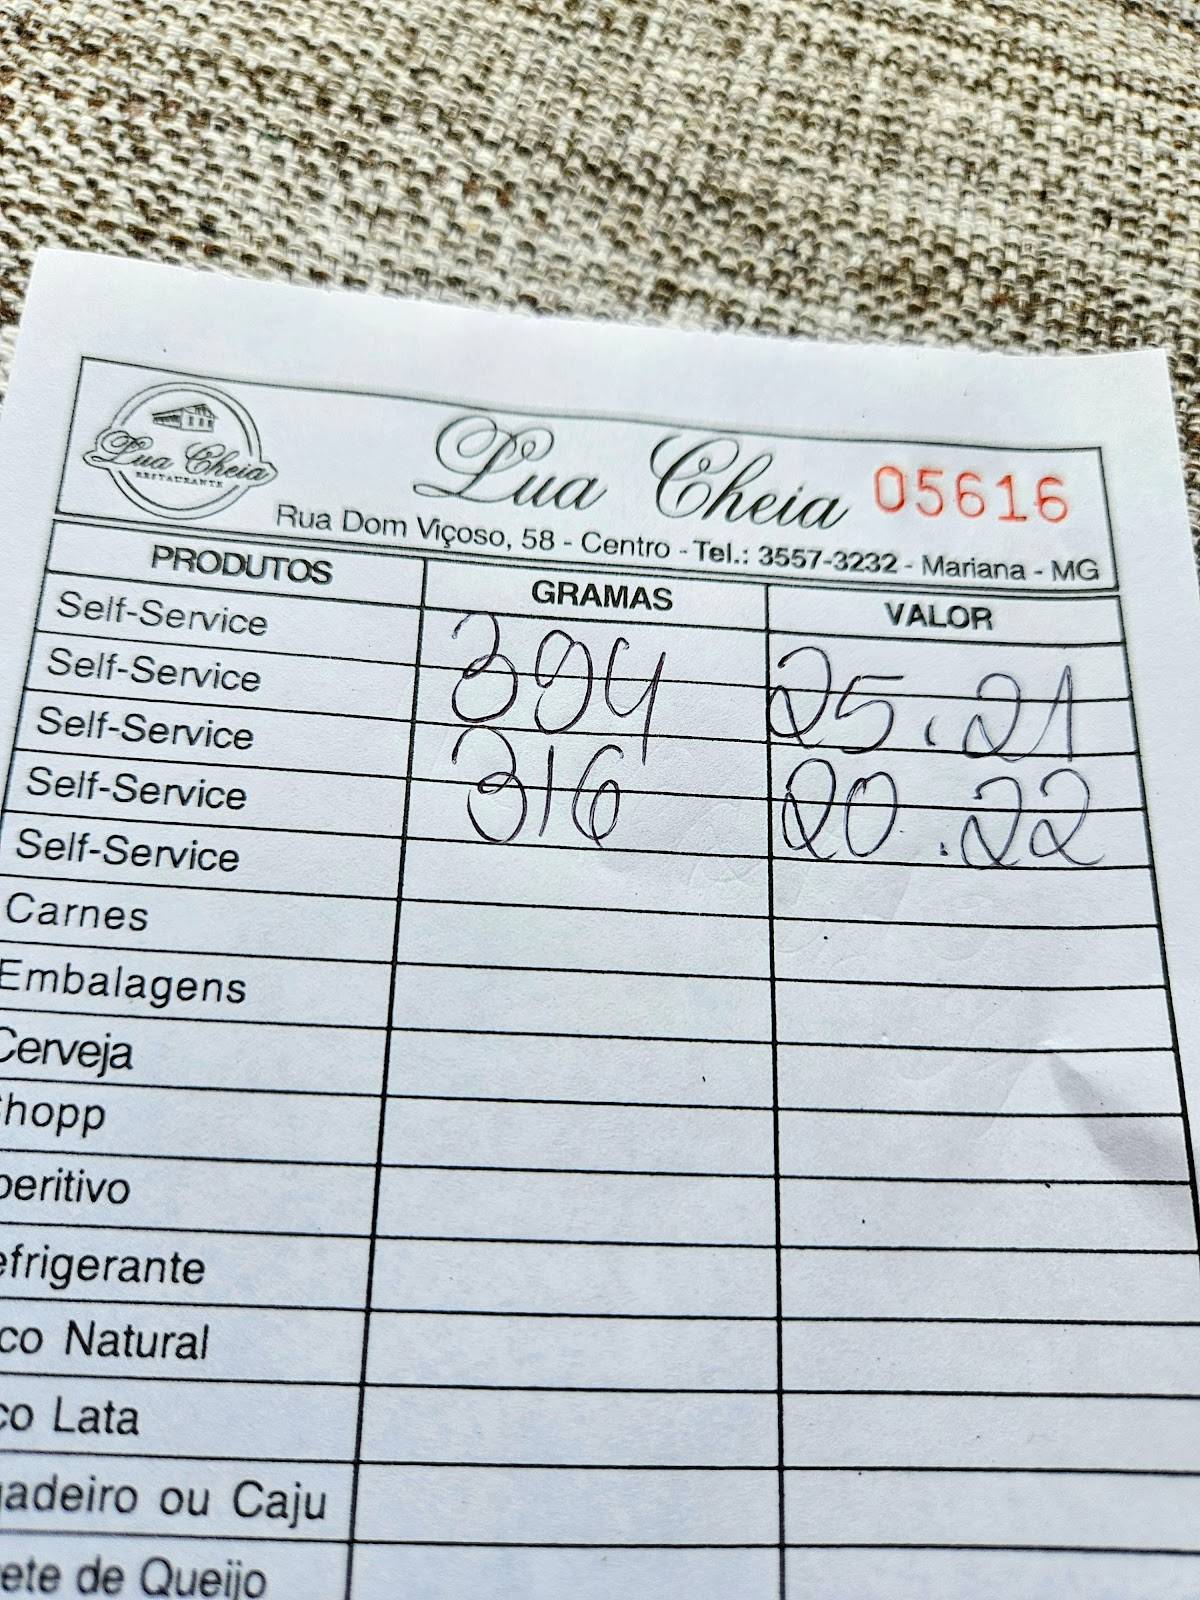 Lua Cheia
RESTAURANTE
Lua Cheia 05616
Rua Dom Viçoso, 58 - Centro - Tel.: 3557-3232 - Mariana - MG
PRODUTOS GRAMAS VALOR
Self-Service 394 25.21
Self-Service
Self-Service 316 20.22
Self-Service
Self-Service
Carnes
Embalagens
Cerveja
hopp
peritivo
efrigerante
co Natural
co Lata
adeiro ou Caju
ete de Queijo